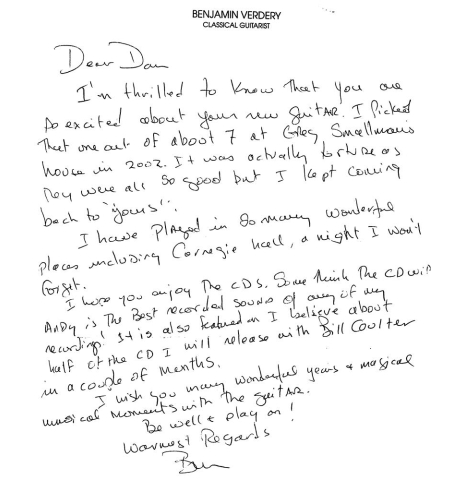 BENJAMIN VERDERY
CLASSICAL GUITARIST
Dear Dan
I'm thrilled to know that you are
so excited about your new guitAR. I Picked
that one out of about 7 at Greg Smallman's
house in 2002. It was actually torture as
they were all so good but I kept coming
back to "yours".
I have Played in so many wonderful
places including Carnegie hall, a night I won't
forget.
I hope you enjoy the CDS. Some think the CD with
Andy is the Best recorded sound of any of my
recordings! It is also featured on I believe about
half of the CD I will release with Bill Coulter
in a couple of months.
I wish you many wonderful years & magical
musical moments with the guitAR.
Be well & play on!
Warmest Regards
Ben